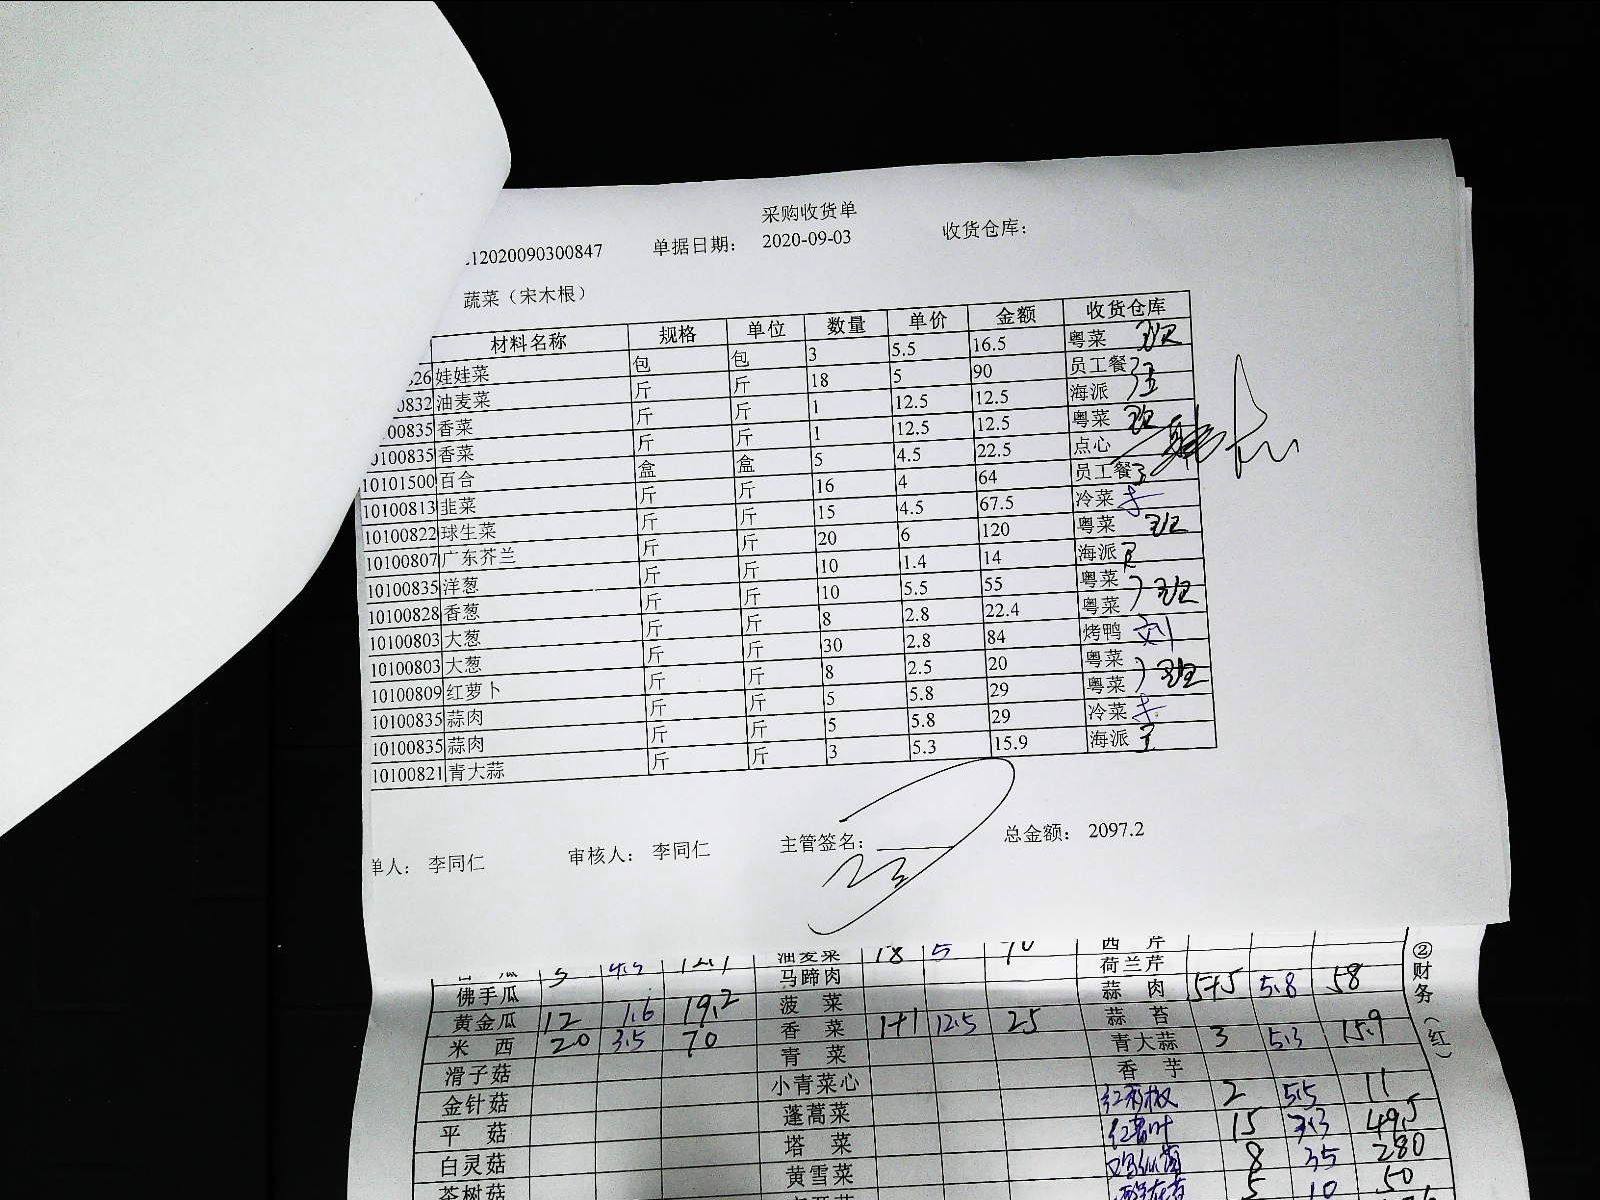 采购收货单
12020090300847 单据日期： 2020-09-03 收货仓库：
蔬菜（宋木根）
材料名称 规格 单位 数量 单价 金额 收货仓库
26 娃娃菜 包 包 3 5.5 16.5 粤菜
0832 油麦菜 斤 斤 18 5 90 员工餐
00835 香菜 斤 斤 1 12.5 12.5 海派
0100835 香菜 斤 斤 1 12.5 12.5 粤菜
10101500 百合 盒 盒 5 4.5 22.5 点心
10100813 韭菜 斤 斤 16 4 64 员工餐
10100822 球生菜 斤 斤 15 4.5 67.5 冷菜
10100807 广东芥兰 斤 斤 20 6 120 粤菜
10100835 洋葱 斤 斤 10 1.4 14 海派
10100828 香葱 斤 斤 10 5.5 55 粤菜
10100803 大葱 斤 斤 8 2.8 22.4 粤菜
10100803 大葱 斤 斤 30 2.8 84 烤鸭 刘
10100809 红萝卜 斤 斤 8 2.5 20 粤菜
10100835 蒜肉 斤 斤 5 5.8 29 粤菜
10100835 蒜肉 斤 斤 5 5.8 29 冷菜
10100821 青大蒜 斤 斤 3 5.3 15.9 海派
单人： 李同仁 审核人： 李同仁 主管签名： 总金额： 2097.2
油麦菜 18 5 西 芹
佛手瓜 马蹄肉 荷兰芹
黄金瓜 12 1.6 19.2 菠 菜 蒜 肉 5+5 5.8 58
米 西 20 3.5 70 香 菜 1+1 12.5 25 蒜 苔
滑子菇 青 菜 青大蒜 3 5.3 15.9
金针菇 小青菜心 香 芋
平 菇 蓬蒿菜 红彩椒 2 5.5 11
白灵菇 塔 菜 红薯叶 15 3.3 49.5
茶树菇 黄雪菜 8 35 280
5 10 50
②财务（红）